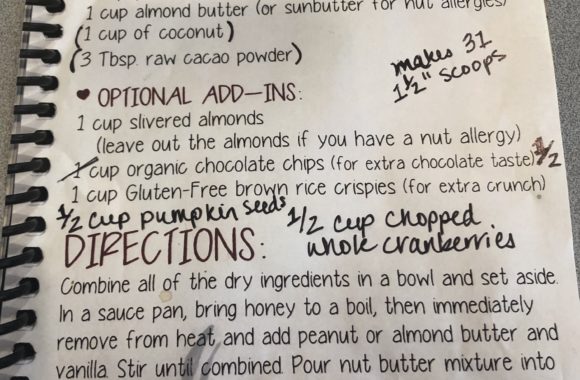 1 cup almond butter (or sunbutter for nut allergies)
(1 cup of coconut)
(3 Tbsp. raw cacao powder)
makes 31
1 1/2" scoops
♥ OPTIONAL ADD-INS:
1 cup slivered almonds
(leave out the almonds if you have a nut allergy)
1 cup organic chocolate chips (for extra chocolate taste) 1/2
1 cup Gluten-Free brown rice crispies (for extra crunch)
1/2 cup pumpkin seeds
1/2 cup chopped
whole cranberries
DIRECTIONS:
Combine all of the dry ingredients in a bowl and set aside.
In a sauce pan, bring honey to a boil, then immediately
remove from heat and add peanut or almond butter and
vanilla. Stir until combined. Pour nut butter mixture into